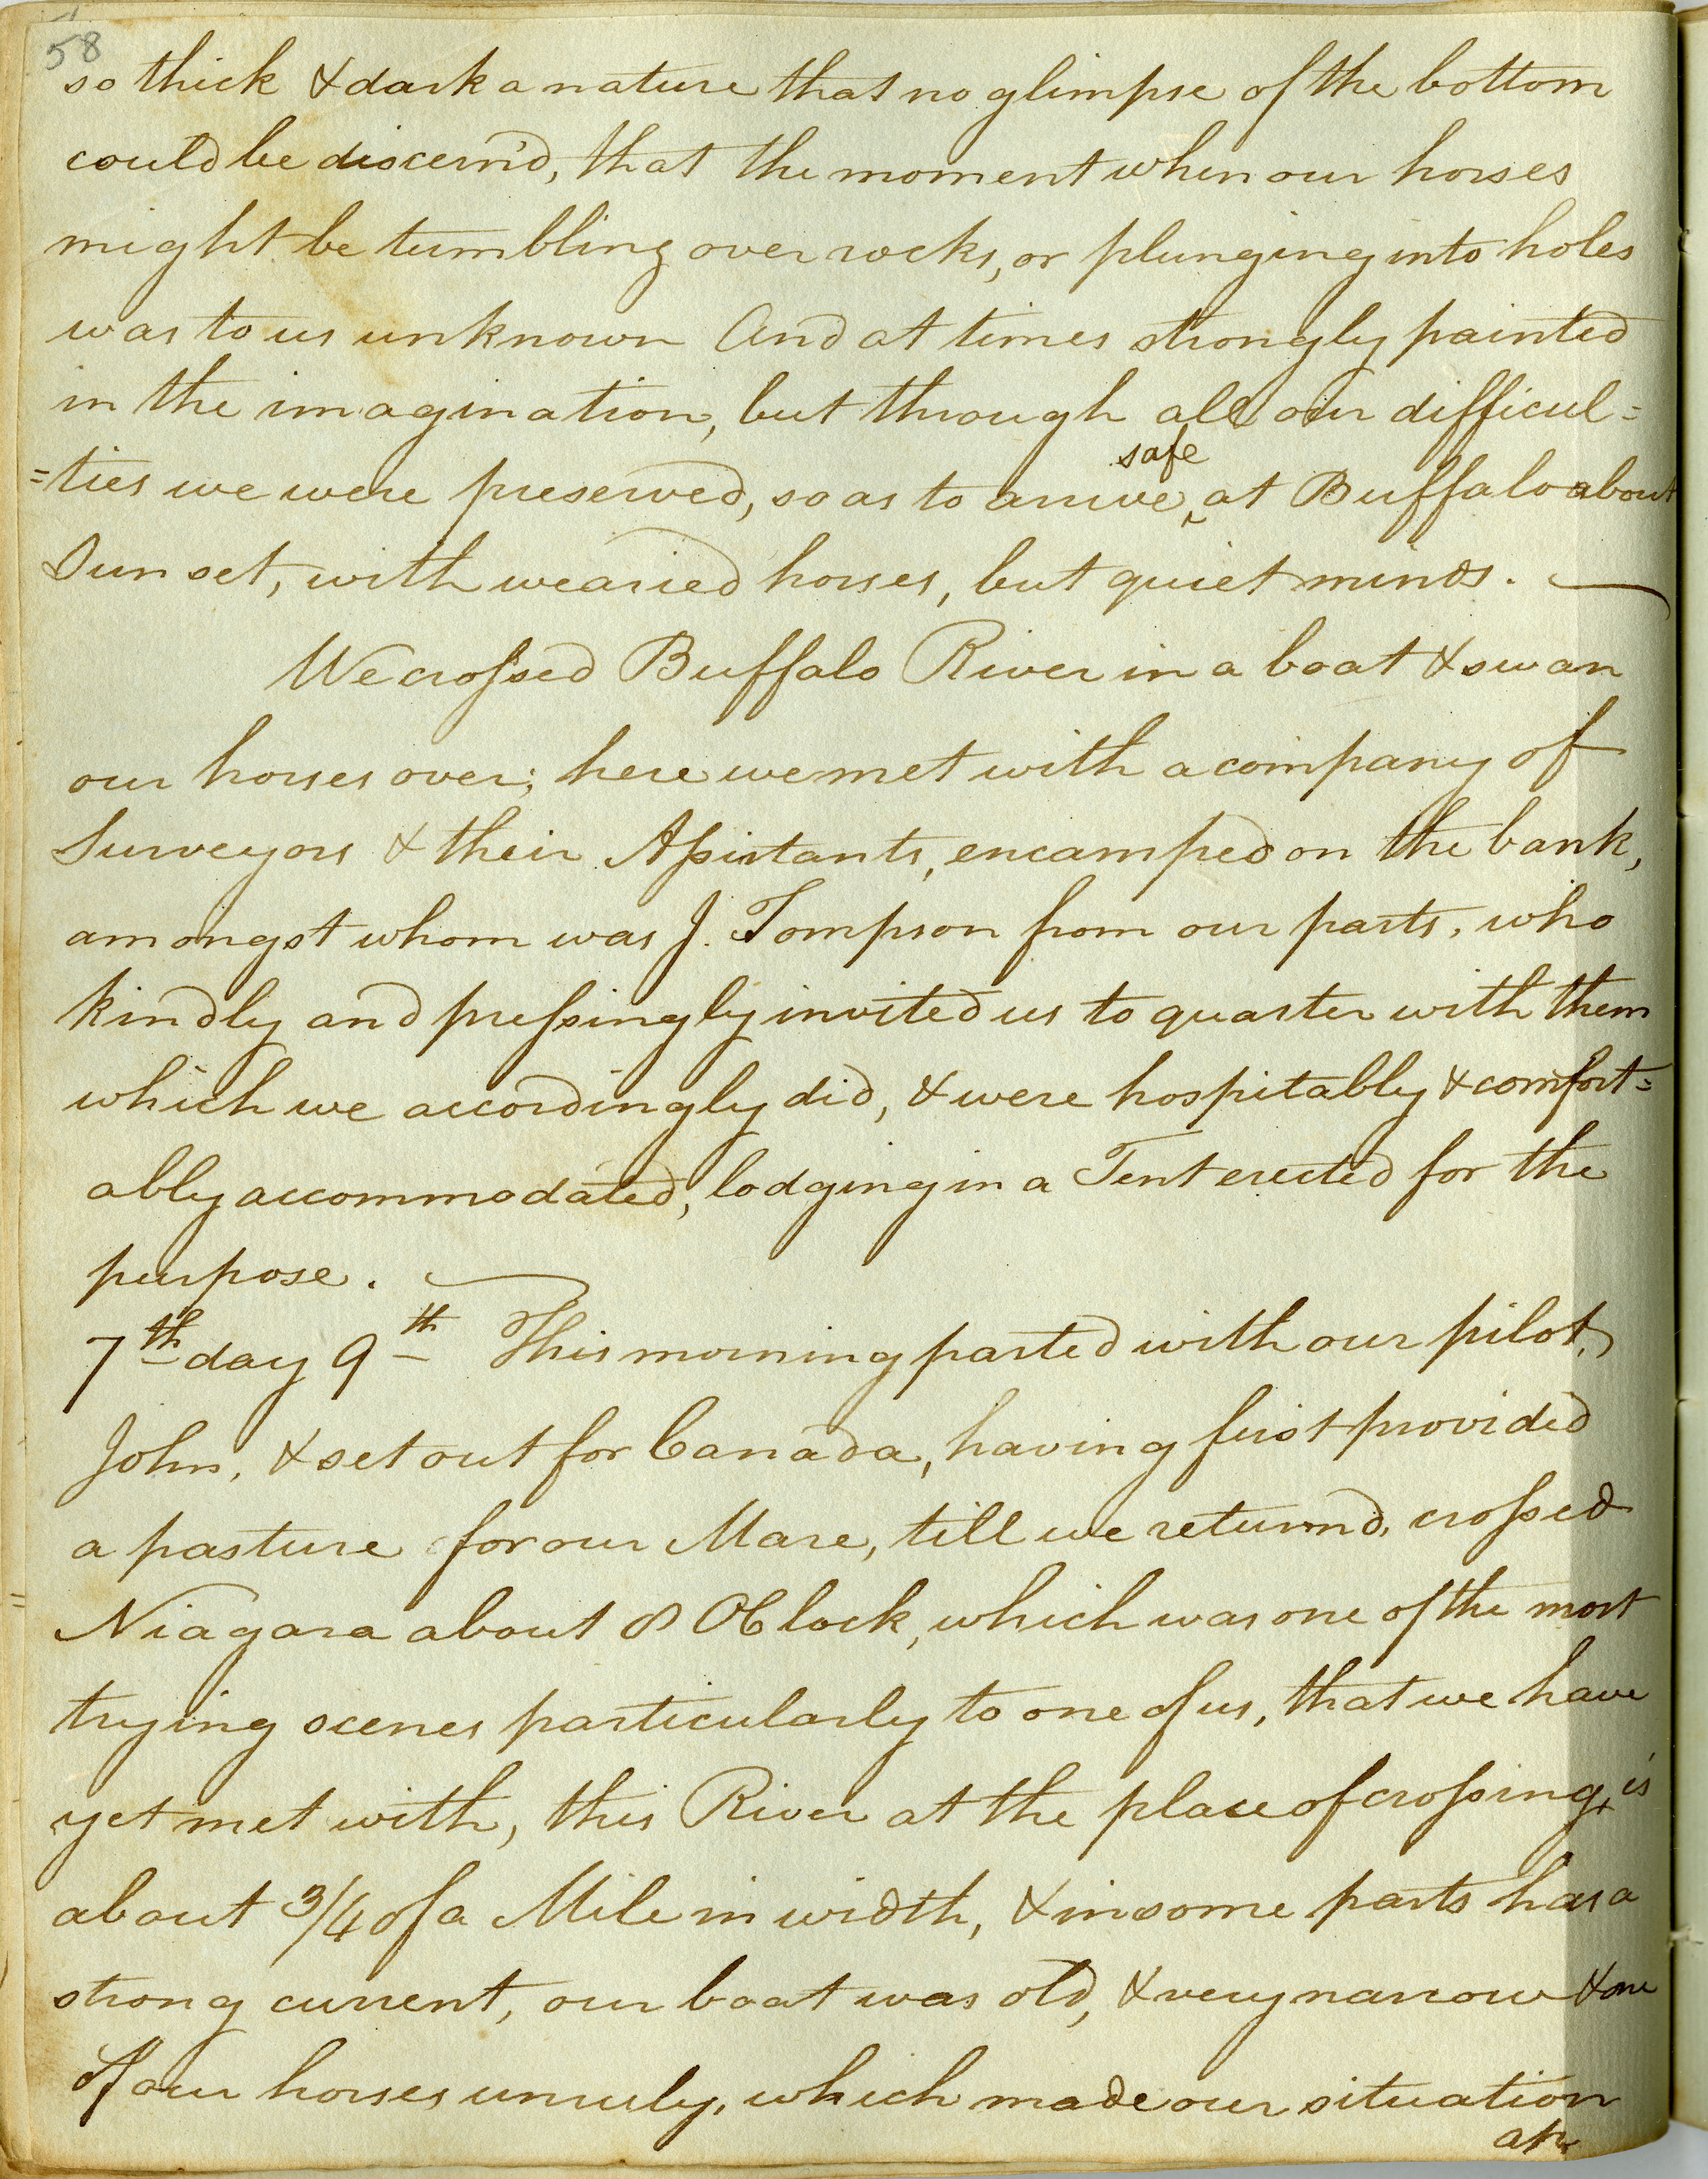 58
so thick & dark a nature that no glimpse of the bottom
could be discern'd, that the moment when our horses
might be tumbling over rocks, or plunging into holes
was to us unknown And at times strongly painted
in the imagination, but through all our difficul=
safe
=ties we were preserved, so as to arrive ‸ at Buffalo about
Sun set, with wearied horses, but quiet minds. —
We croſsed Buffalo River in a boat & swam
our horses over; here we met with a company of
Surveyors & their Aſsistants, encamped on the bank,
amongst whom was J. Tompson from our parts, who
kindly and preſsingly invited us to quarter with them
which we accordingly did, & were hospitably & comfort=
ably accommodated, lodging in a Tent erected for the
purpose. —
7th day 9th This morning parted with our pilot,
John, & set out for Canada, having first provided
a pasture for our Mare, till we return'd, croſsed
Niagara about 8 OClock, which was one of the most
trying scenes particularly to one of us, that we have
yet met with, this River at the place of croſsing, is
about 3/4 of a Mile in width, & in some parts has a
strong current, our boat was old, & very narrow & one
of our horses unruly, which made our situation